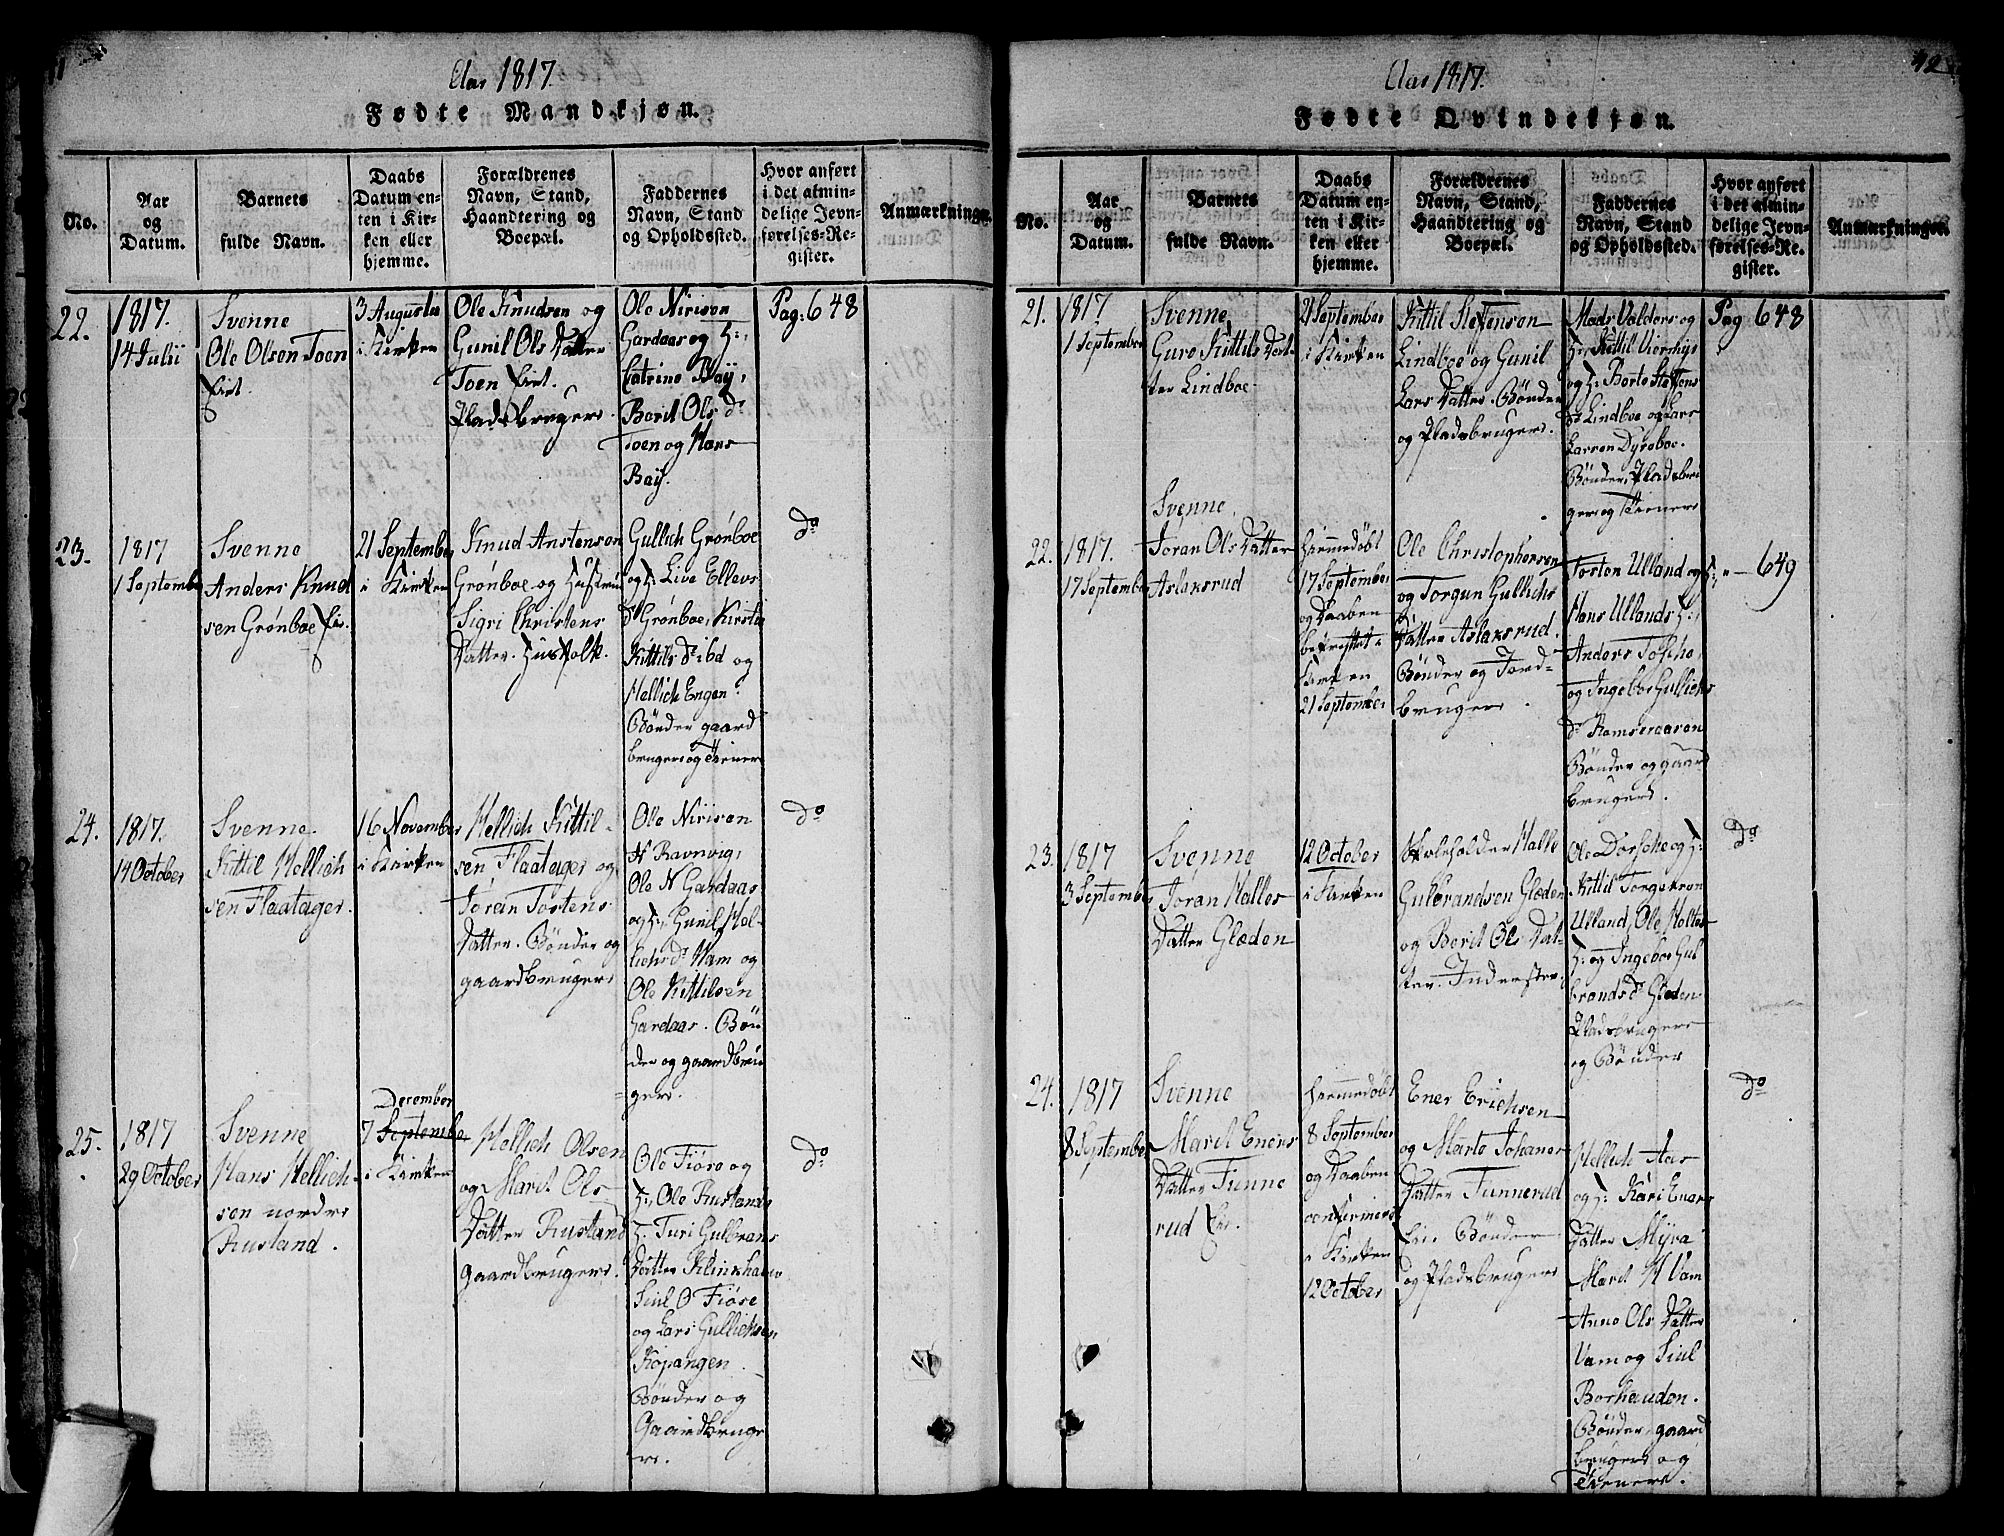 Aar 1817.
Fødte Mandkjøn.
No.
Aar
og
Datum.
Barnets
fulde Navn.
Daabs
Datum en-
ten i Kir-
ken eller
hjemme.
Forældrenes
Navn, Stand,
Haandtering og
Boepæl.
Faddernes
Navn, Stand
og Opholdssted.
Hvor anført
i det almin-
delige Jevn-
førelses-Re-
gister.
Anmærkninger.
22.
1817.
14 Julii
Svenne
Ole Olsen Toen
Eie.
3 Augustus
i Kirken
Ole Knudsen og
Gunil Ols Datter
Toen Eiet.
Pladsbrugere.
Ole Nirison
Gardaas og H:,
Catrine Baÿ,
Berit Ols D.
Toen og Hans
Baÿ.
Pag: 648
23.
1817
1 September
Svenne
Anders Knud
sen Grønboe Eie.
21 September
i Kirken
Knud Anstenson
Grønboe og Hustrue
Sigri Christens
Datter. Huusfolk.
Gullich Grønboe
og H: Live Ellevs
D. Grønboe, Kirsti
Kittils D. ibd og
Hellich Engen.
Bønder gaard
brugere og Tiener
Do
24.
1817.
14 October
Svenne
Kittil Hellich
sen Flaatager.
16 November
i Kirken
Hellich Kittil-
sen Flaatager og
Jøran Tostens
Datter. Bønder og
gaardbrugere
Ole Nirison
N Ravnvig,
Ole N Gardaas
og H:, Gunil Hel-
lichs D. Ham og
Ole Kittilsen
Gardaas. Bøn
der og gaardbru
gere.
Do
25.
1817
29 October
Svenne
Hans Hellich-
sen nordre
Rustand.
December
7 September
i Kirken
Hellich Olsen
og Marit Ols-
Datter Rustand
gaardbrugere.
Ole Fiøse og
H:, Ole Rustands
H. Turi Gulbrans
Datter Klinkhaniv
Siul O Fiøse
og Lars Gullichsen
Kopangen.
Bønder og
Gaardbruge
re.
Do
42
Aar 1817.
Fødte Qvindekjøn.
No.
Aar
og
Datum.
Barnets
fulde Navn.
Daabs
Datum en-
ten i Kir-
ken eller
hjemme.
Forældrenes
Navn, Stand,
Haandtering og
Boepæl.
Faddernes
Navn, Stand
og Opholdssted.
Hvor anført
i det almin-
delige Jevn-
førelses-Re-
gister.
Anmærkninger.
21.
1817
1 September
Svenne
Guro Kittils Dat-
ter Lindboe
21 September
i Kirken
Kittil Steffenson
Lindboe og Gunil
Lars Datter. Bønder
og Pladsbrugere.
Mads Valders og
H:, Kittil
og H: Berte Steffens
D. Lindboe og Lars
Larsen Dyreboe.
Bønder, Pladsbru
gere og Tienere
Pag 648
22.
1817.
17 September
Svenne
Joran Ols Datter
Aslaksrud
hiemmedøbt
17 September
og Daaben
bekræftet i
Kirken
21 September
Ole Christophersen
og Torgun Gullichs
Datter Aslaksrud.
Bønder og Jord-
brugere.
Tosten Ulland og H:,
Hans Ullands H:,
Anders Tofsho,
og Ingeboe Gullichs
D. Ramseraasen
Bønder og gaard
brugere.
" — 649
23.
1817
3 September
Svenne
Joran Halles
Datter Glæden
12 October
i Kirken
Skoleholder Halle
Gulbrandsen Glæden
og Berit Ols Dat-
ter. Inderster.
Ole Dorfshe og H:
Kittil Torgerson
Ulland, Ole Holtes
H: og Ingeboe Gul
brands D. Glæden
Pladsbrugere
og Bønder
Do
24.
1817
8 September
Svenne
Marit Eners
Datter Tunne
rud Eie.
hiemmedøbt
8 September
og Daaben
confirmert
i Kirken
12 October
Ener Erichsen
og Marte Johanes
Datter Tunnerud
Eie. Bønder
og Pladsbrugere
Hellich Aas
og H: Kari Enars
Datter Myra
Marit H Vam
Anne Ols Datter
Vam og Siul
Borhauden.
Bønder, gaard
brugere og
Tienere.
Do